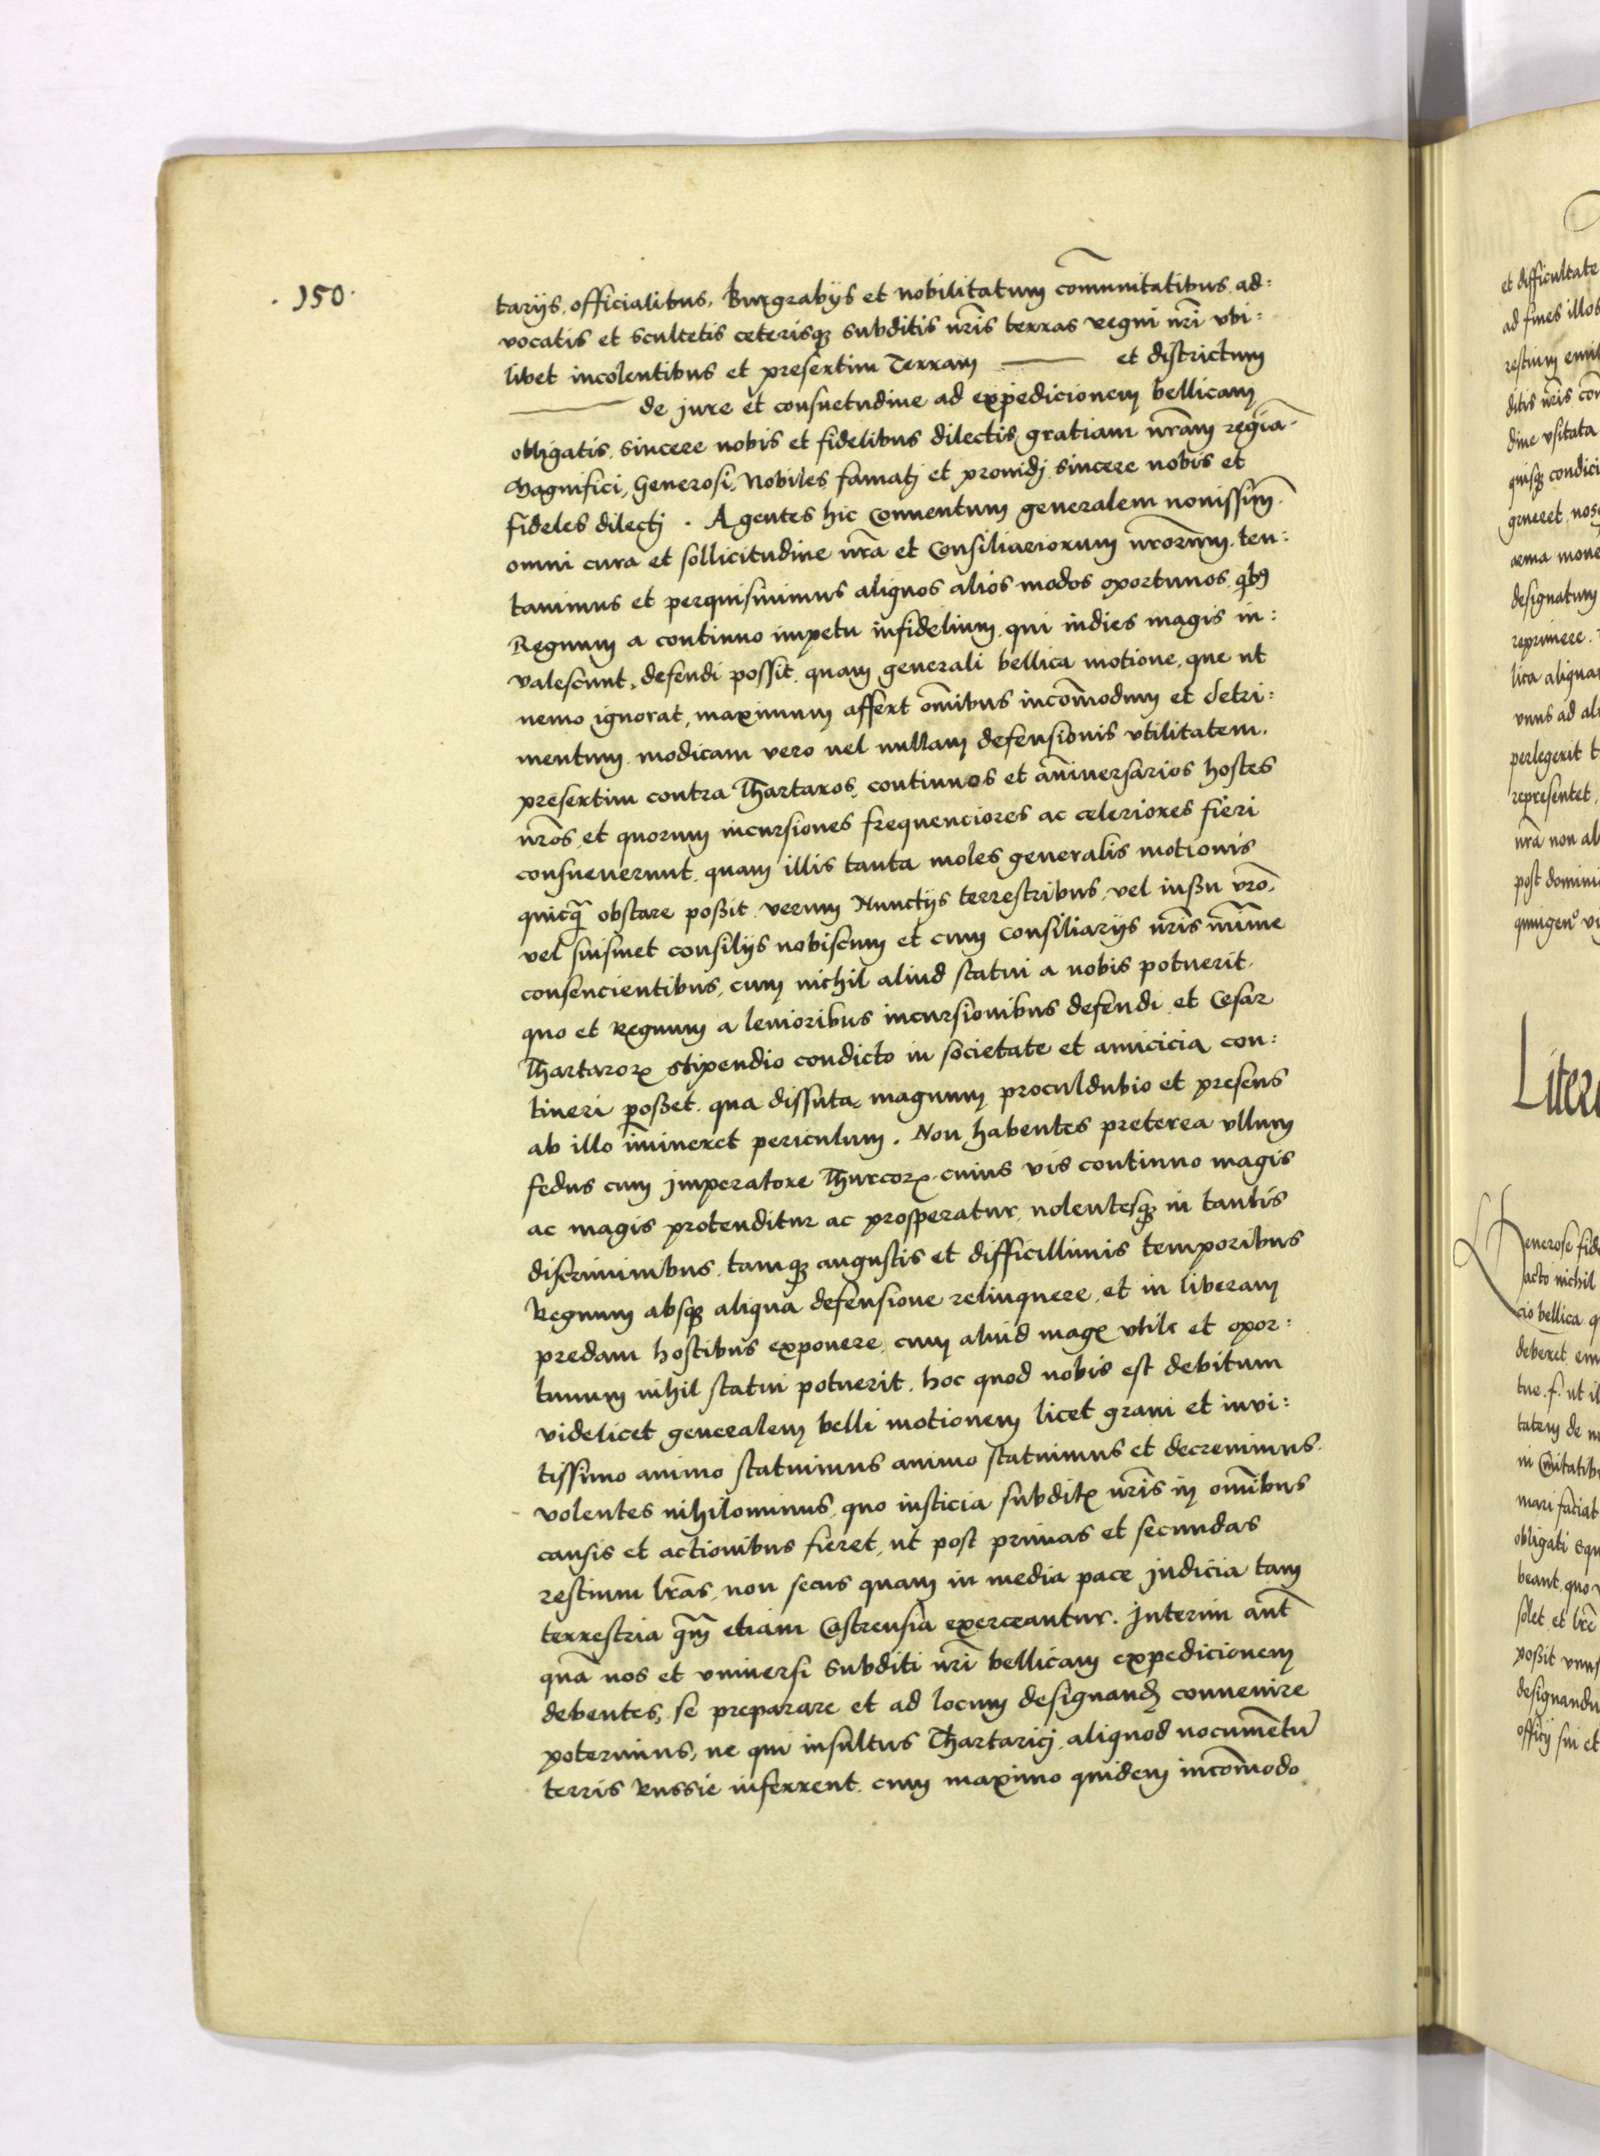 . 150 .
tarijs, officialibus, Burgrabijs et nobilitatum com̃unitatibus, ad:
vocatis et Scultetis ceterisqꝫ subditis nr̃is terras regni nr̃i vbi:
libet incolentibus et presertim Terram ——— et districtum
——— de jure et consuetudine ad expedicionem bellicam
obligatis, sincere nobis et fidelibus dilectis gratiam nr̃am regiã.
Magnifici, Generosi, Nobiles, famatj et prouidj sincere nobis et
fideles dilectj . Agentes hic Conuentum generalem nouissim̃
omni cura et sollicitudine nr̃a et Consiliariorum nr̃orum, ten:
tauimus et perquisiuimus aliquos alios modos oportunos, qbꝫ
Regnum a continuo impetu infidelium, qui indies magis in:
valescunt, defendi possit, quam generali bellica motione, que ut
nemo ignorat, maximum affert om̃ibus incom̃odum et detri:
mentum, modicam vero uel nullam defensionis vtilitatem,
presertim contra Thartaros, continuos et an̄iuersarios hostes
nr̃os, et quorum incursiones frequenciores ac celeriores fieri
consueuerunt, quam illis tanta moles generalis motionis
quicq̃ obstare poßit, verum Nunctijs terrestribus, vel iußu vr̃o,
vel suismet consilijs nobiscum et cum consiliarijs nr̃is minime
consencientibus, cum nichil aliud statui a nobis potuerit,
quo et Regnum a leuioribus incursionibus defendi, et Cesar
Thartarorꝝ stipendio condicto in societate et amicicia con:
tineri poßet, qua dissuta, magnum proculdubio et presens
ab illo im̃ineret periculum. Non habentes preterea ullum
fedus cum Imperatore Thurcorꝝ, cuius vis continuo magis
ac magis protenditur ac prosperatur, nolentesqꝫ in tantis
discriminibus, tamqꝫ angustis et difficillimis temporibus
Regnum absqꝫ aliqua defensione relinquere, et in liberam
predam hostibus exponere, cum aliud mage vtile et opor:
tunum nihil statui potuerit, hoc quod nobis est debitum
videlicet generalem belli motionem licet graui et inui:
tissimo animo statuimus animo statuimus et decreuimus,
volentes nihilominus, quo iusticia subditꝭ nr̃is in om̃ibus
causis et actionibus fieret, ut post primas et secundas
restium lr̃as, non secus quam in media pace judicia tam
terrestria qm̃ etiam Castrensia exerceantur. Interim aut̃
quã nos et vniuersi subditi nr̃i bellicam expedicionem
debentes, se preparare et ad locum designandꝫ conuenire
poterimus, ne qui insultus Thartaricj aliquod nocumentũ
terris Russie inferrent, cum maximo quidem incom̃odo
et difficultate
ad fines illos
restium
ditis nr̃is
dine vsitata
quisqꝫ
generet
arma
designatum
reprimere.
lica
vnus ad
perlegerit
representet,
nr̃a non
post
Liter
enerose
acto nichil
cio bellica
deberet
tatem de
mari faciat
obligati
beant, quo
solet, et
poßit
designandu
officij sui et